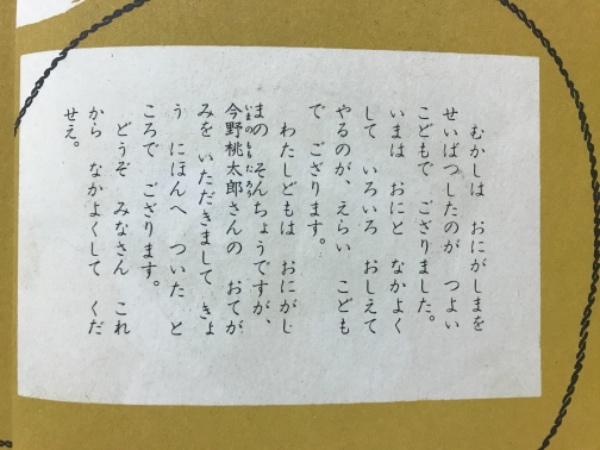 むかしは おにがしまを
せいばつしたのが つよい
こどもで ござりました。
いまは おにと なかよく
して いろいろ おしえて
やるのが、えらい こども
で ござります。
わたしどもは おにがし
まの そんちょうですが、
今野桃太郎さんの おてが
いまのももたろう
みを いただきまして きょ
う にほんへ ついた と
ころで ござります。
どうぞ みなさん これ
から なかよくして くだ
せえ。